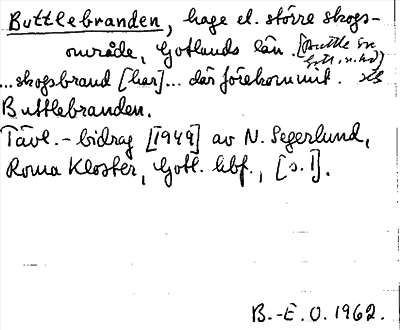 Buttlebranden, hage el. större skogs-
område, Gotlands län. [Buttle sn
Gotl. n. hd]
...skogsbrand [har]... där förekommit. sts
Buttlebranden.
Tävl.-bidrag [1949] av N. Segerlund,
Roma Kloster, Gotl. hbf., [s. 1].
B.-E. O. 1962.